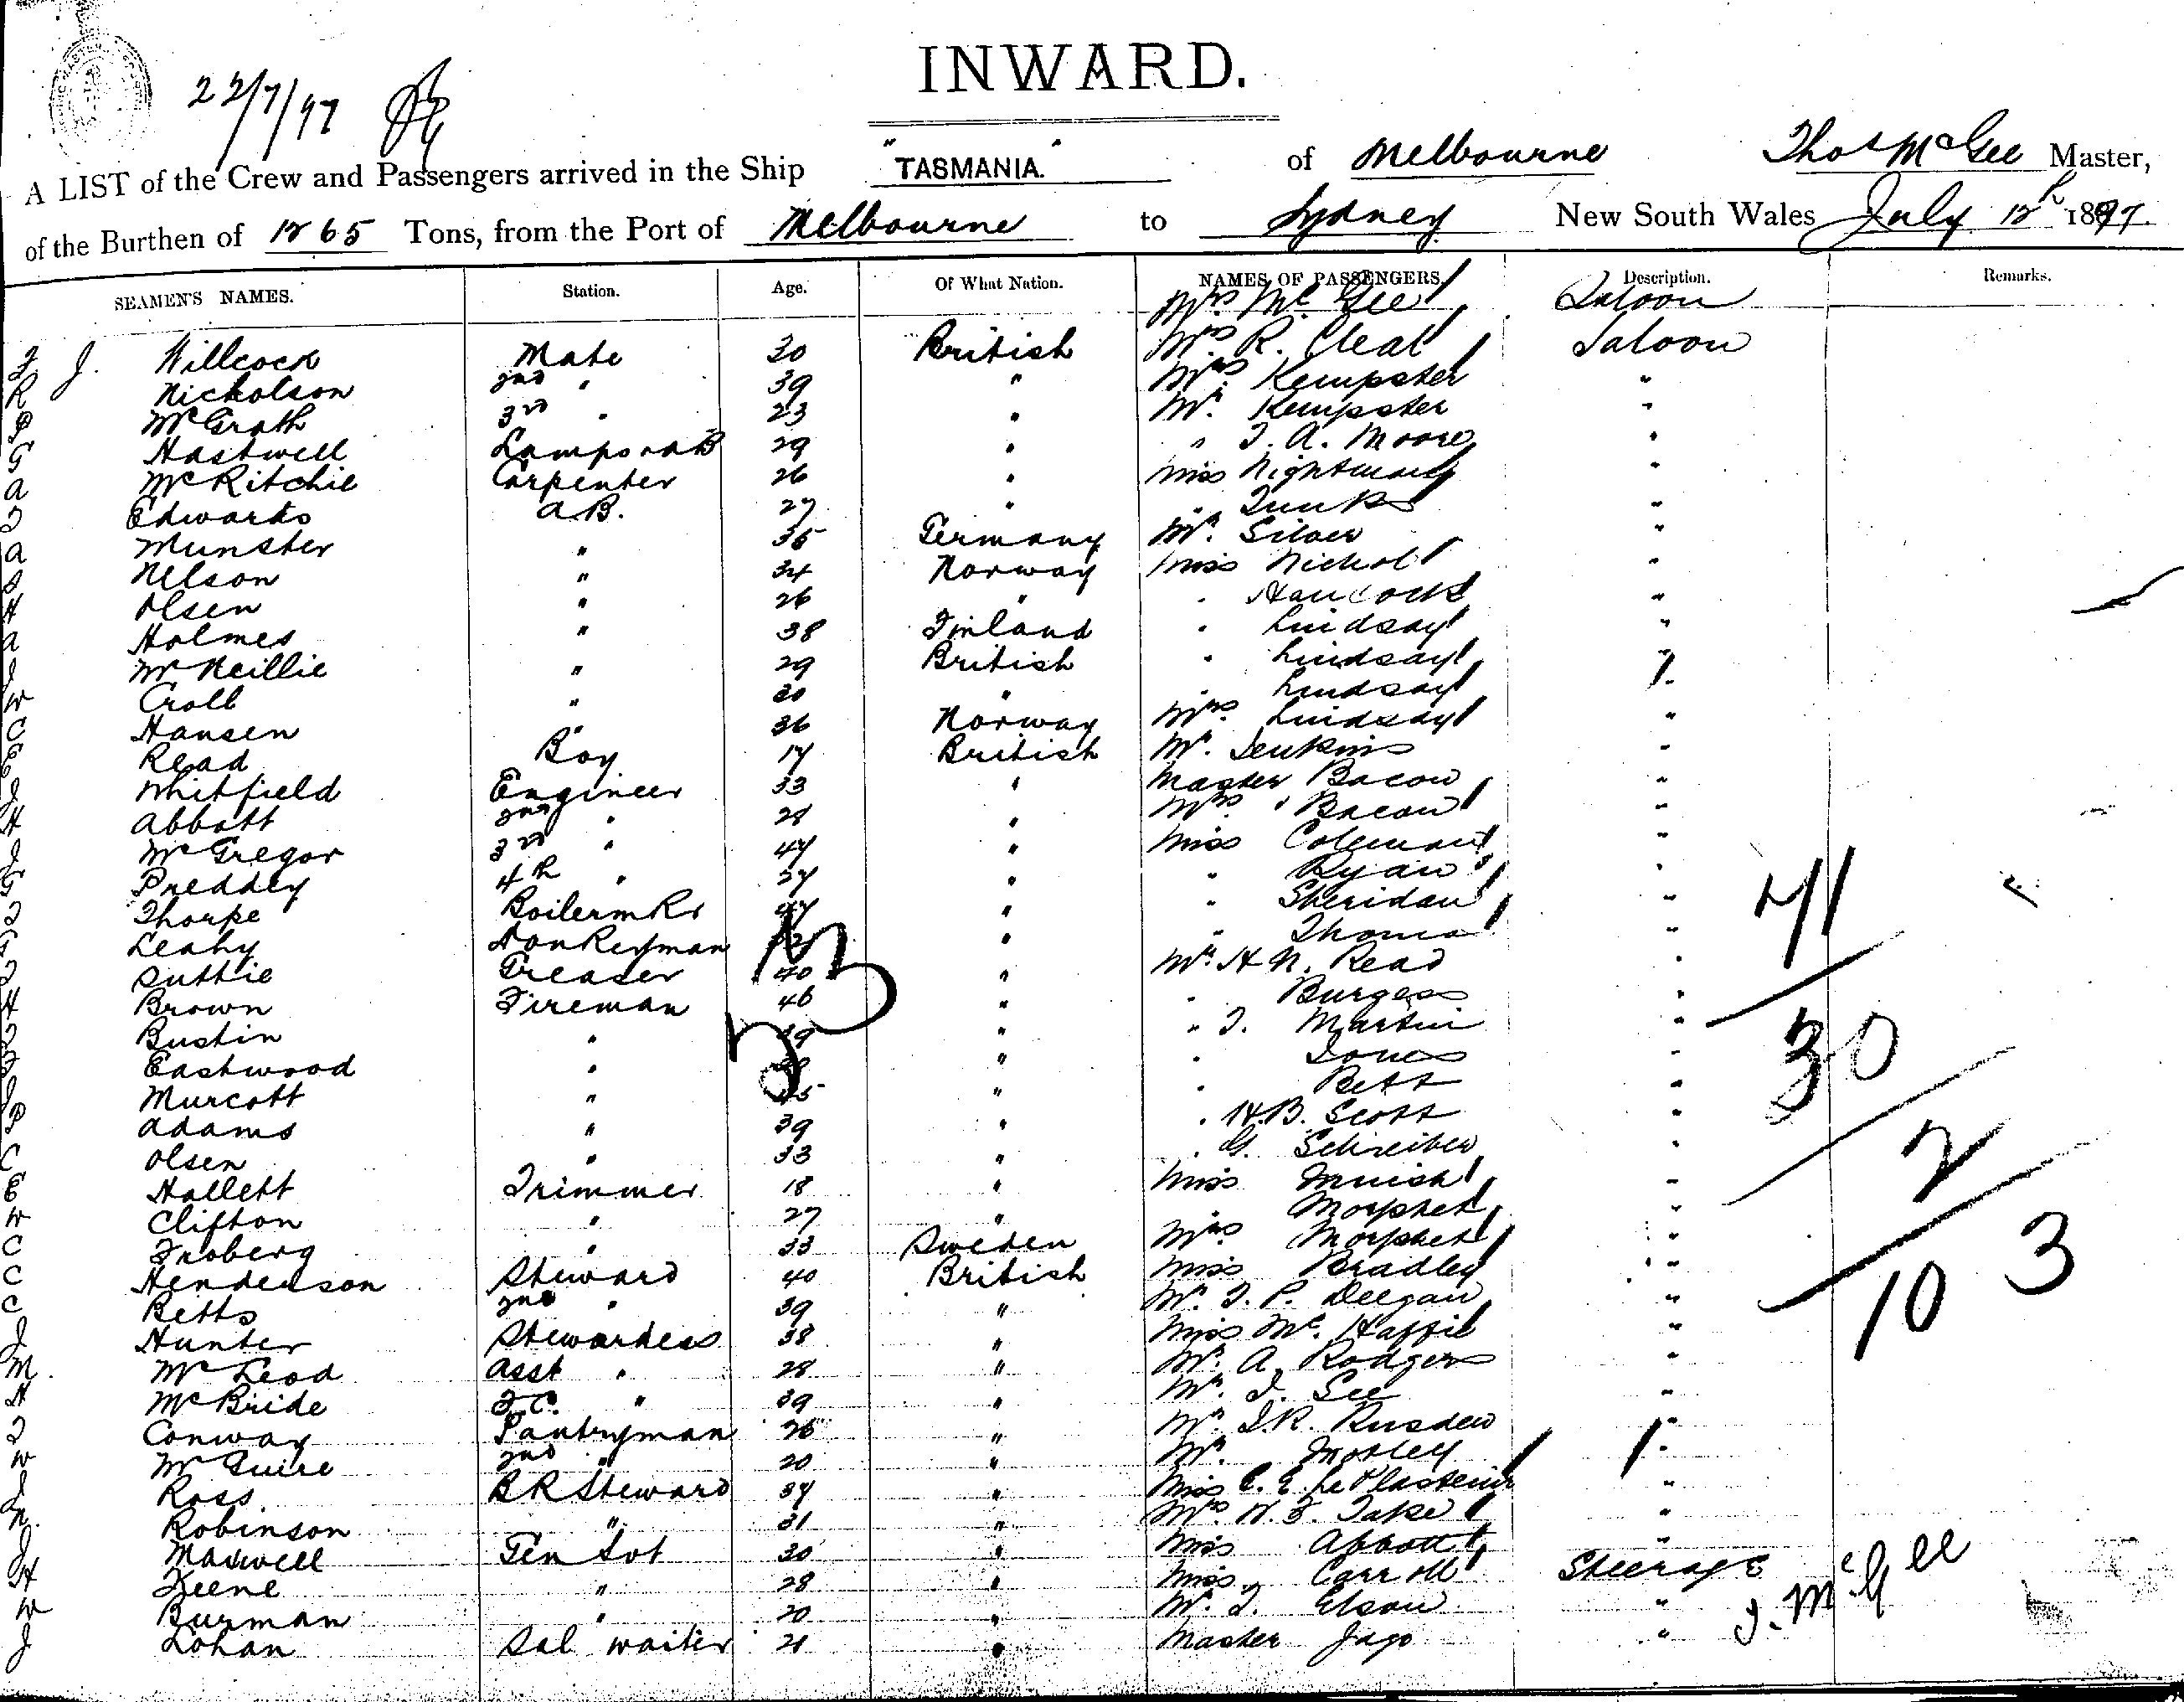 INWARD.
22/7/97
A LIST of the Crew and Passengers arrived in the Ship "TASMANIA." of Melbourne Thos McGee Master,
of the Burthen of 1265 Tons, from the Port of Melbourne to Sydney New South Wales July 12th 1897.
SEAMEN'S NAMES. Station. Age. Of What Nation. NAMES OF PASSENGERS. Description. Remarks.
Mrs Mc Gee Saloon
J. Willcock Mate 30 British Mrs R. Cleal Saloon
R Nicholson 2nd " 39 " Mrs. Kempster "
P McGrath 3rd " 23 " Mr. Kempster "
G Hastwell Lamps & AB 29 " " T. A. Moore "
A McRitchie Carpenter 26 " Miss Nightingale "
T Edwards A.B. 27 " " Tunks "
A Munster " 35 Germany Mr. Silver "
S Nelson " 34 Norway Miss Nichol "
H Olsen " 26 " " Hancock "
A Holmes " 38 Finland " Lindsay "
J McNeillie " 29 British " Lindsay "
W Croll " 20 " " Lindsay
C Hansen " 36 Norway Mrs. Lindsay "
E Read Boy 17 British Mr. Jenkins "
J Whitfield Engineer 33 " Master Bacon "
H Abbott 2nd " 28 " Mrs. Bacon "
J McGregor 3rd " 47 " Miss Coleman "
G Preddey 4th " 27 " " Ryan "
T Thorpe Boilermkr 47 " " Sheridan "
Leahy Donkeyman " " Thomas "
Suttie Greaser 40 " Mr. H. N. Read "
H Brown Fireman 46 " " Burgess "
T Bustin " 39 " " T. Martin "
Eastwood " " " Jones "
J Murcott " 45 " " Bett "
P Adams " 39 " " H.B. Scott "
C Olsen " 33 " " G. Schreiber "
E Hallett Trimmer 18 " Miss "
W Clifton " 27 " " Morphet "
C Froberg " 33 Sweden Mrs Morphet "
C Henderson Steward 40 British Miss Bradley "
C Betts 2nd " 39 " Mr. T. P. Deegan "
J Hunter Stewardess 38 " Miss Mc. Haffie "
M. McLeod Asst " 28 " Mr. A. Rodgers "
H McBride F.C. " 39 " Mr. J. See "
T Conway Pantryman 26 " Mr. J.R. Rusden "
W McGuire 2nd " 20 " Mr. Motley "
J Ross B R Steward 37 " Miss C. E. Le Plastrier "
N. Robinson " 31 " Mrs N. F. Jake "
J Maxwell Gen Svt 30 " Miss Abbott "
H Keene " 28 " Miss Carroll Steerage
W Burman " 20 " Mr. T. Elson "
J Lohan Sal waiter 21 " Master Jago "
53
71
30
2
103
T. McGee